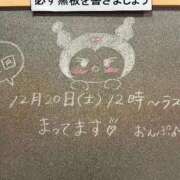 必ず黒板を書きましょう
回
12月20日(土)12時〜ラス
まってます♡ おんぷよ